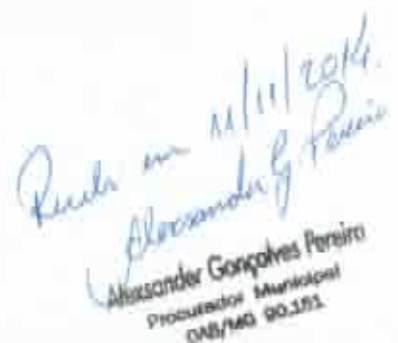 Recebi em 11/11/2014.
Alexsander G Pereira
Alexsander Gonçalves Pereira
Procurador Municipal
OAB/MG 90.151